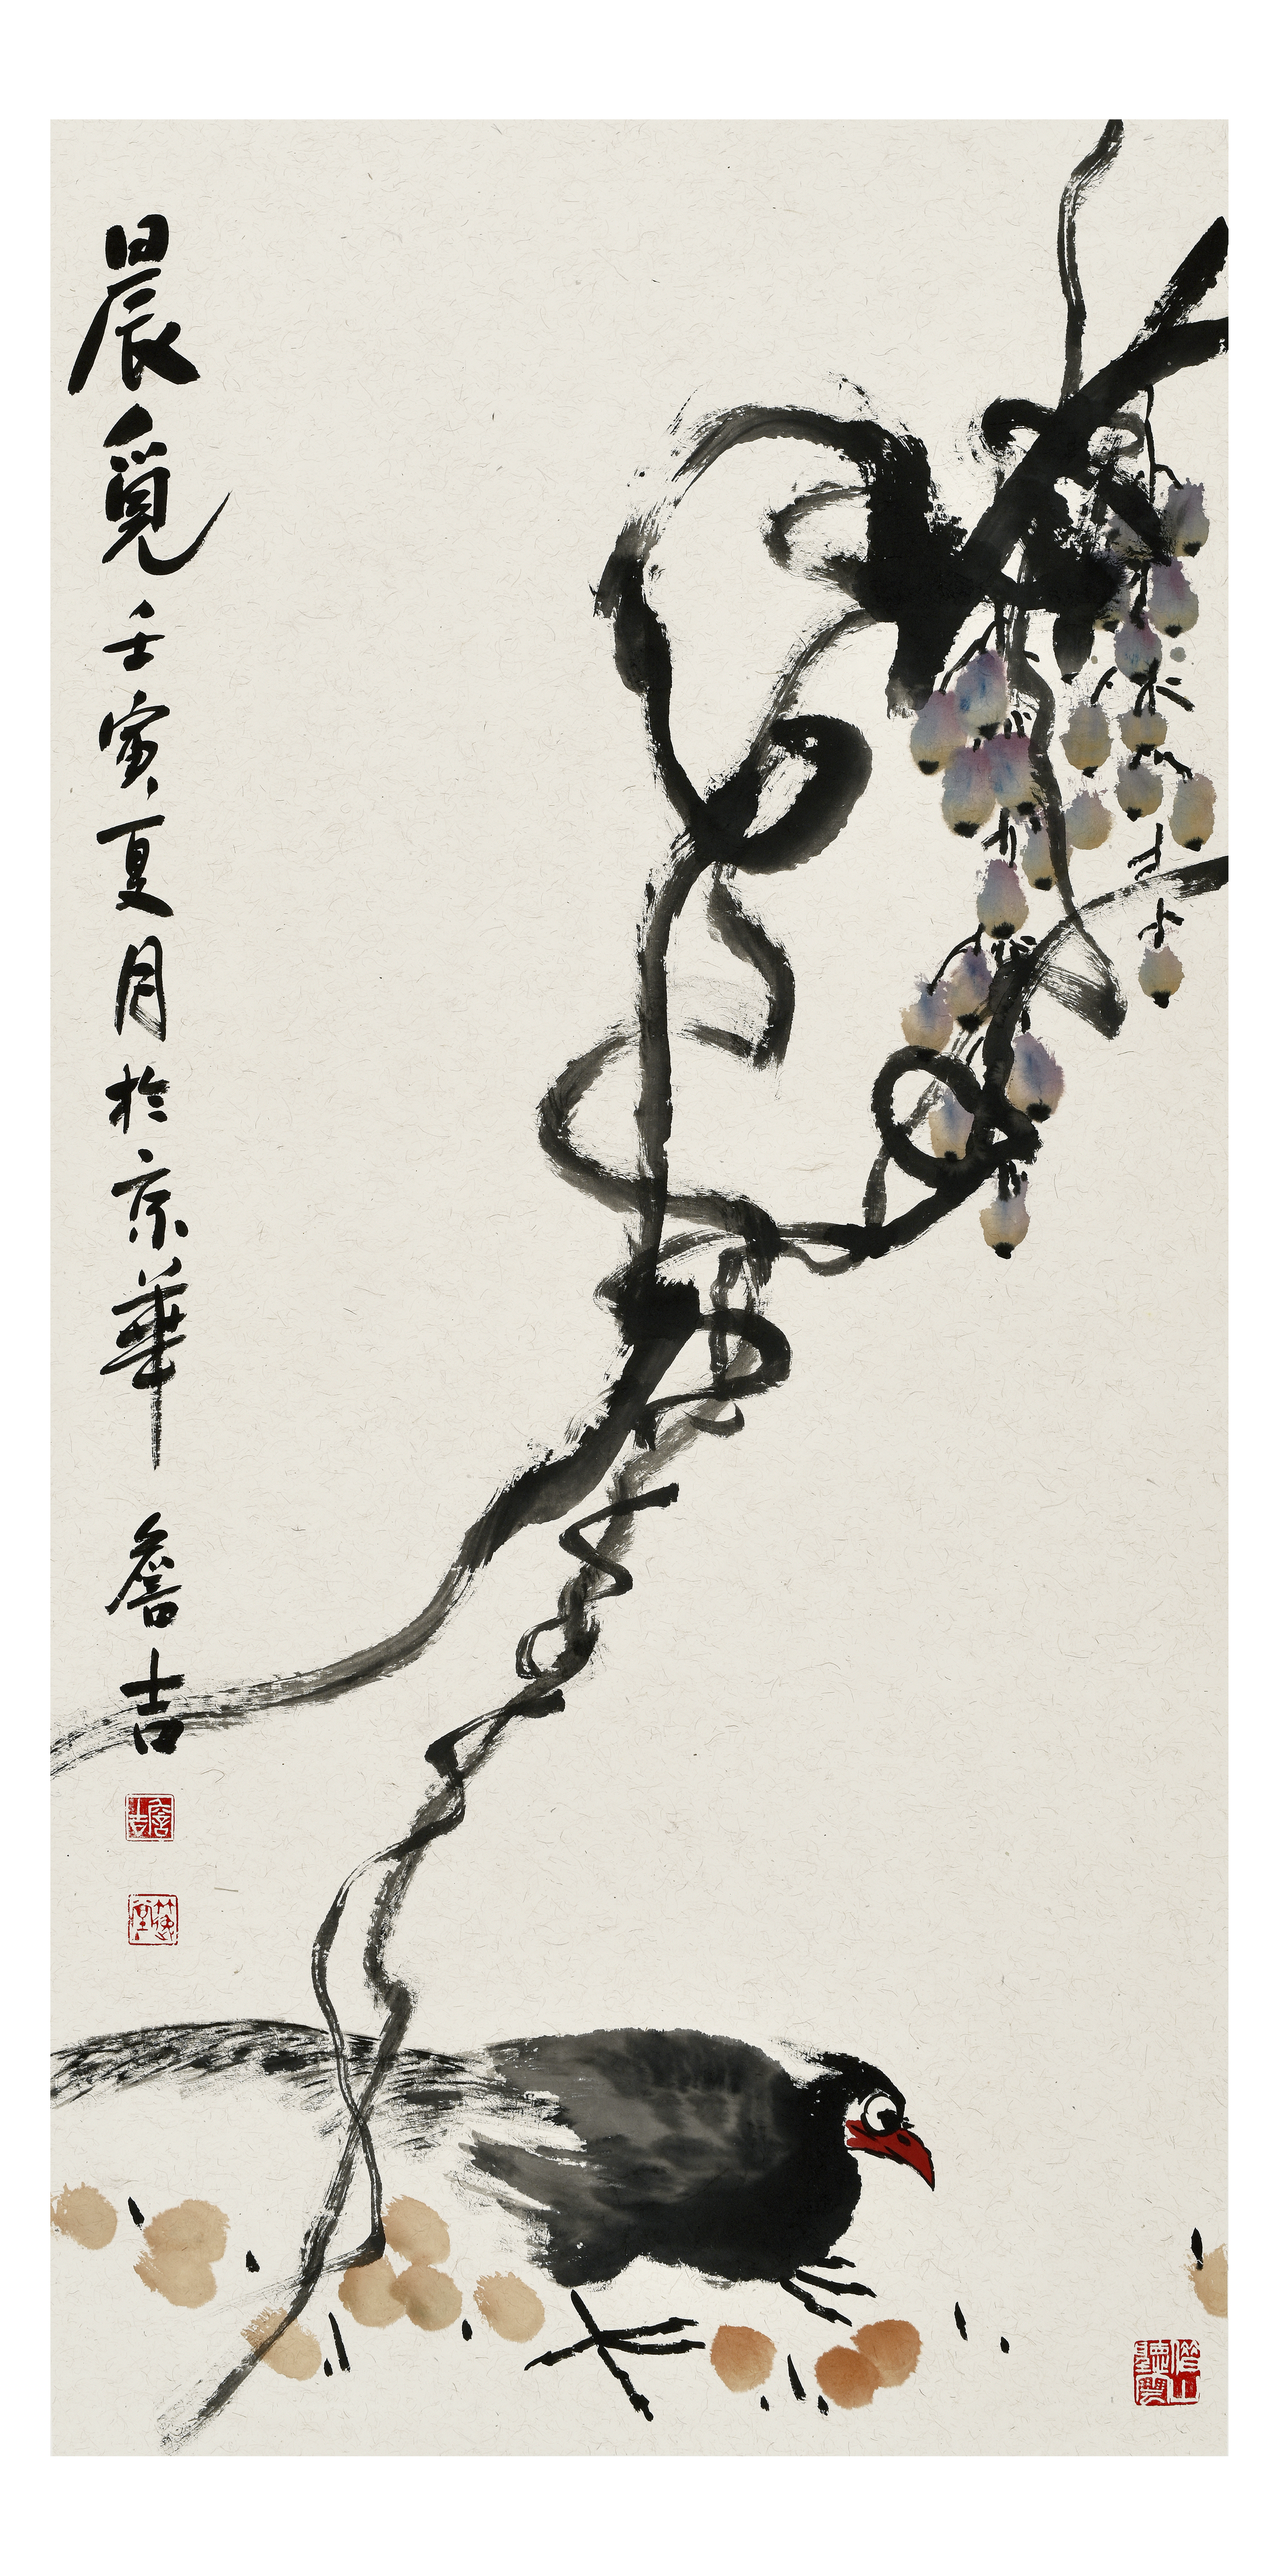 晨覓 壬寅夏月於京華 詹吉
詹吉